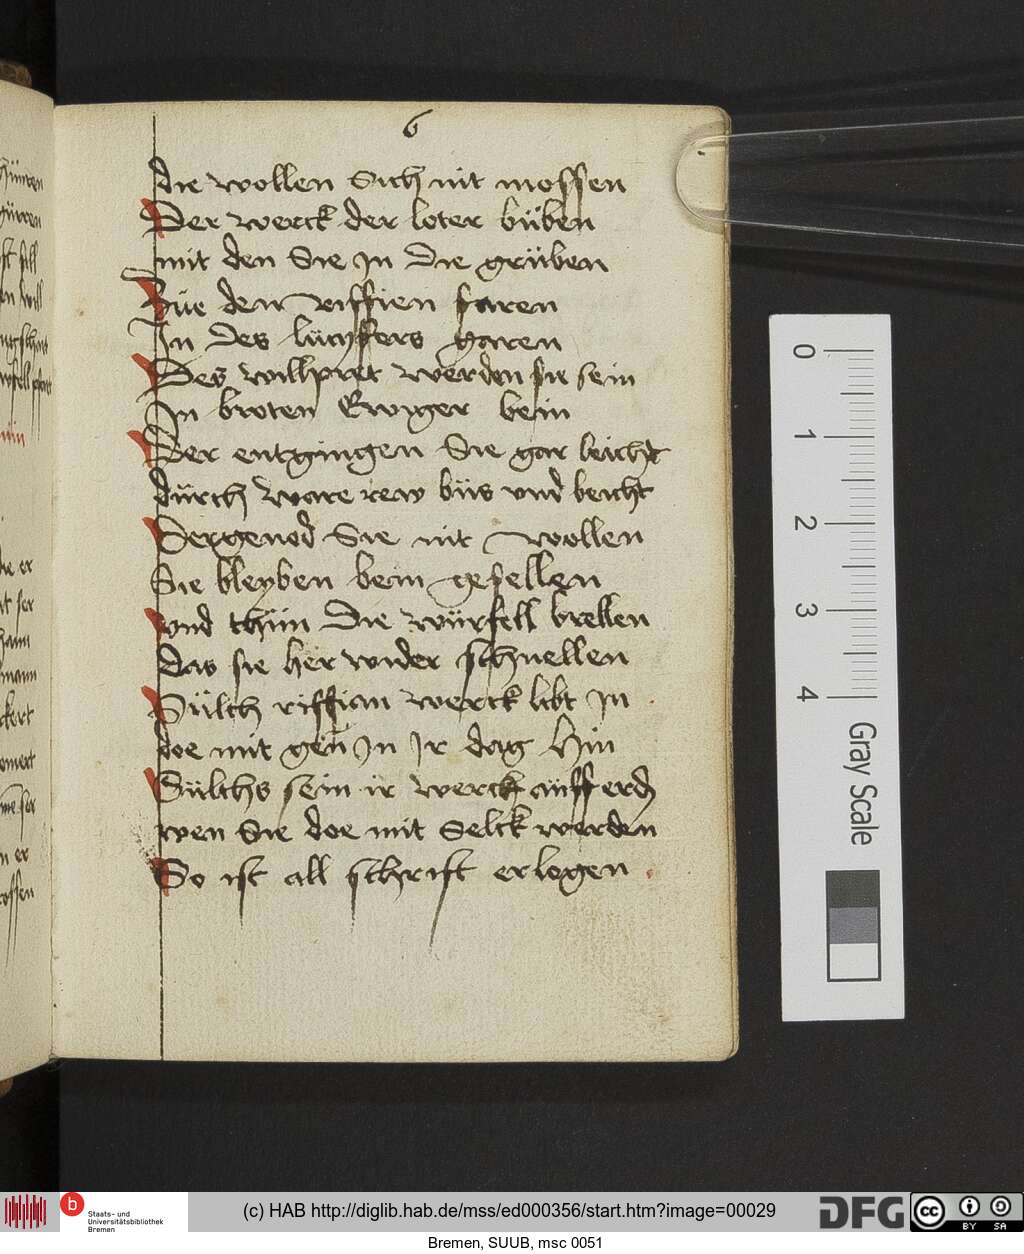 6
die wollen Sich nit mossen
Der werck der loter büben
mit den Sie In Die grüben
Hüe dem riffien faren
In des lucyfers garen
Des willpret werden sie sein
In broten Ewiger bein
Der entgingen Sie gar leicht
dürch ware rew büs vnd beicht
Dergenod Sie nit wollen
Sie bleyben beim gesellen
vnd thün Die würfell brellen
das sie her wider schnellen
Sülch riffian werck lebt In
doe mit gen In Ir dag hin
Sülchs sein ir werck aüff erd
wen Sie doe mit Selck werden
So ist all schrift erlogen
0
1
2
3
4
Gray Scale
b
Staats- und
Universitätsbibliothek
Bremen
(c) HAB http://diglib.hab.de/mss/ed000356/start.htm?image=00029
DFG
cc
BY SA
Bremen, SUUB, msc 0051